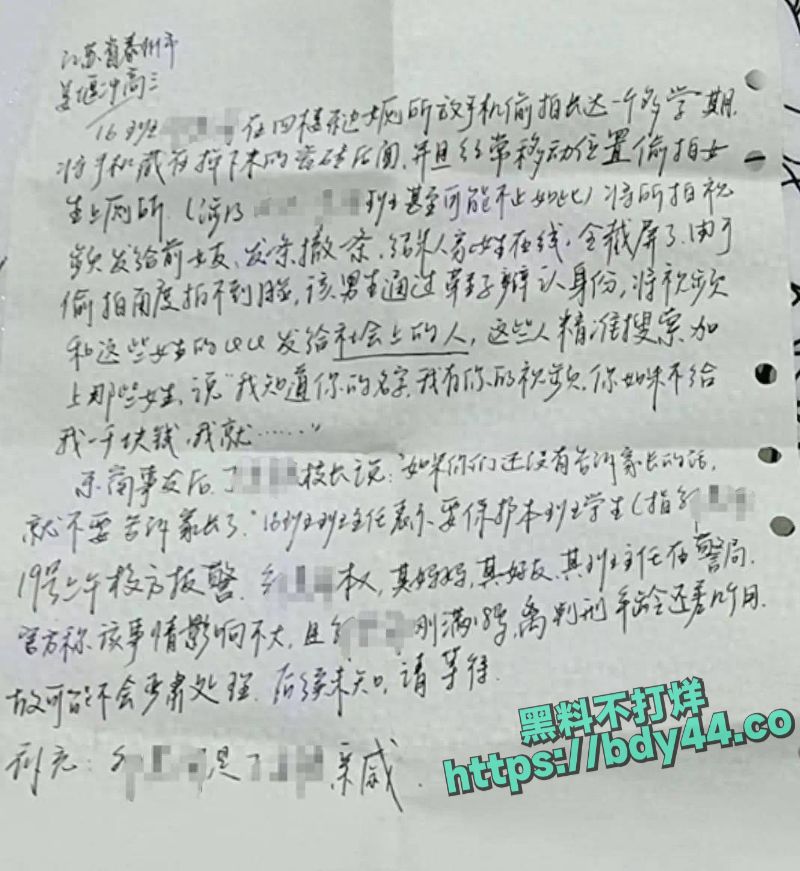 江苏省泰州市
姜堰中高三
16班 在四楼 女厕所放手机偷拍长达一个多学期.
将手机藏在掉下来的瓷砖后面,并且经常移动位置偷拍女
生上厕所.(涉及 班甚至可能不止如此)将所拍视
频发给前女友、发一条撤一条,结果人家女生在线,全截屏了.由于
偷拍角度拍不到脸,该男生通过鞋子辨认身份,将视频
和这些女生的QQ发给社会上的人,这些人精准搜索加
上那些女生,说“我知道你的名字,我有你的视频,你如果不给
我一千块钱,我就……”
东窗事发后,丁 校长说:“如果你们还没有告诉家长的话,
就不要告诉家长了.”16班班主任表示要保护本班学生(指
19号上午校方报警. 本人,其妈妈,其好友,其班主任在警局.
官方称该事情影响不大,且 刚满18岁,离判刑年龄还差 个月.
故可能不会严肃处理.后续未知,请等待.
补充: 是丁 亲戚.
黑料不打烊
https://bdy44.co